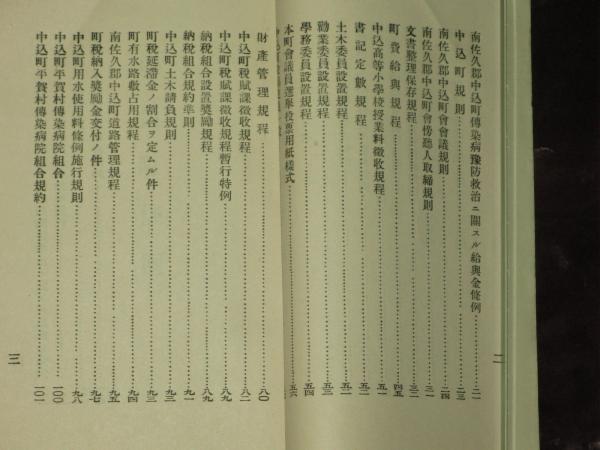 南佐久郡中込町傳染病豫防救治ニ關スル給與金條例……二一
中込町規則……二三
南佐久郡中込町會會議規則……二四
南佐久郡中込町會傍聽人取締規則……三一
文書整理保存規程……三二
町費給與規程……四五
中込高等小學校授業料徵收規程……五一
書記定數規程……五一
土木委員設置規程……五二
勸業委員設置規程……五三
學務委員設置規程……五四
本町會議員選擧投票用紙樣式……五六
二
財產管理規程……八〇
中込町稅賦課徵收規程……八二
中込町稅賦課徵收規程暫行特例……八九
納稅組合設置獎勵規程……八九
納稅組合規約準則……九一
中込町土木請負規則……九三
町稅延滯金ノ割合ヲ定ムル件……九三
町有水路敷占用規程……九四
南佐久郡中込町道路管理規程……九五
町稅納入獎勵金交付ノ件……九七
中込町用水使用料條例施行規則……九八
中込町平賀村傳染病院組合……一〇〇
中込町平賀村傳染病院組合規約……一〇一
三